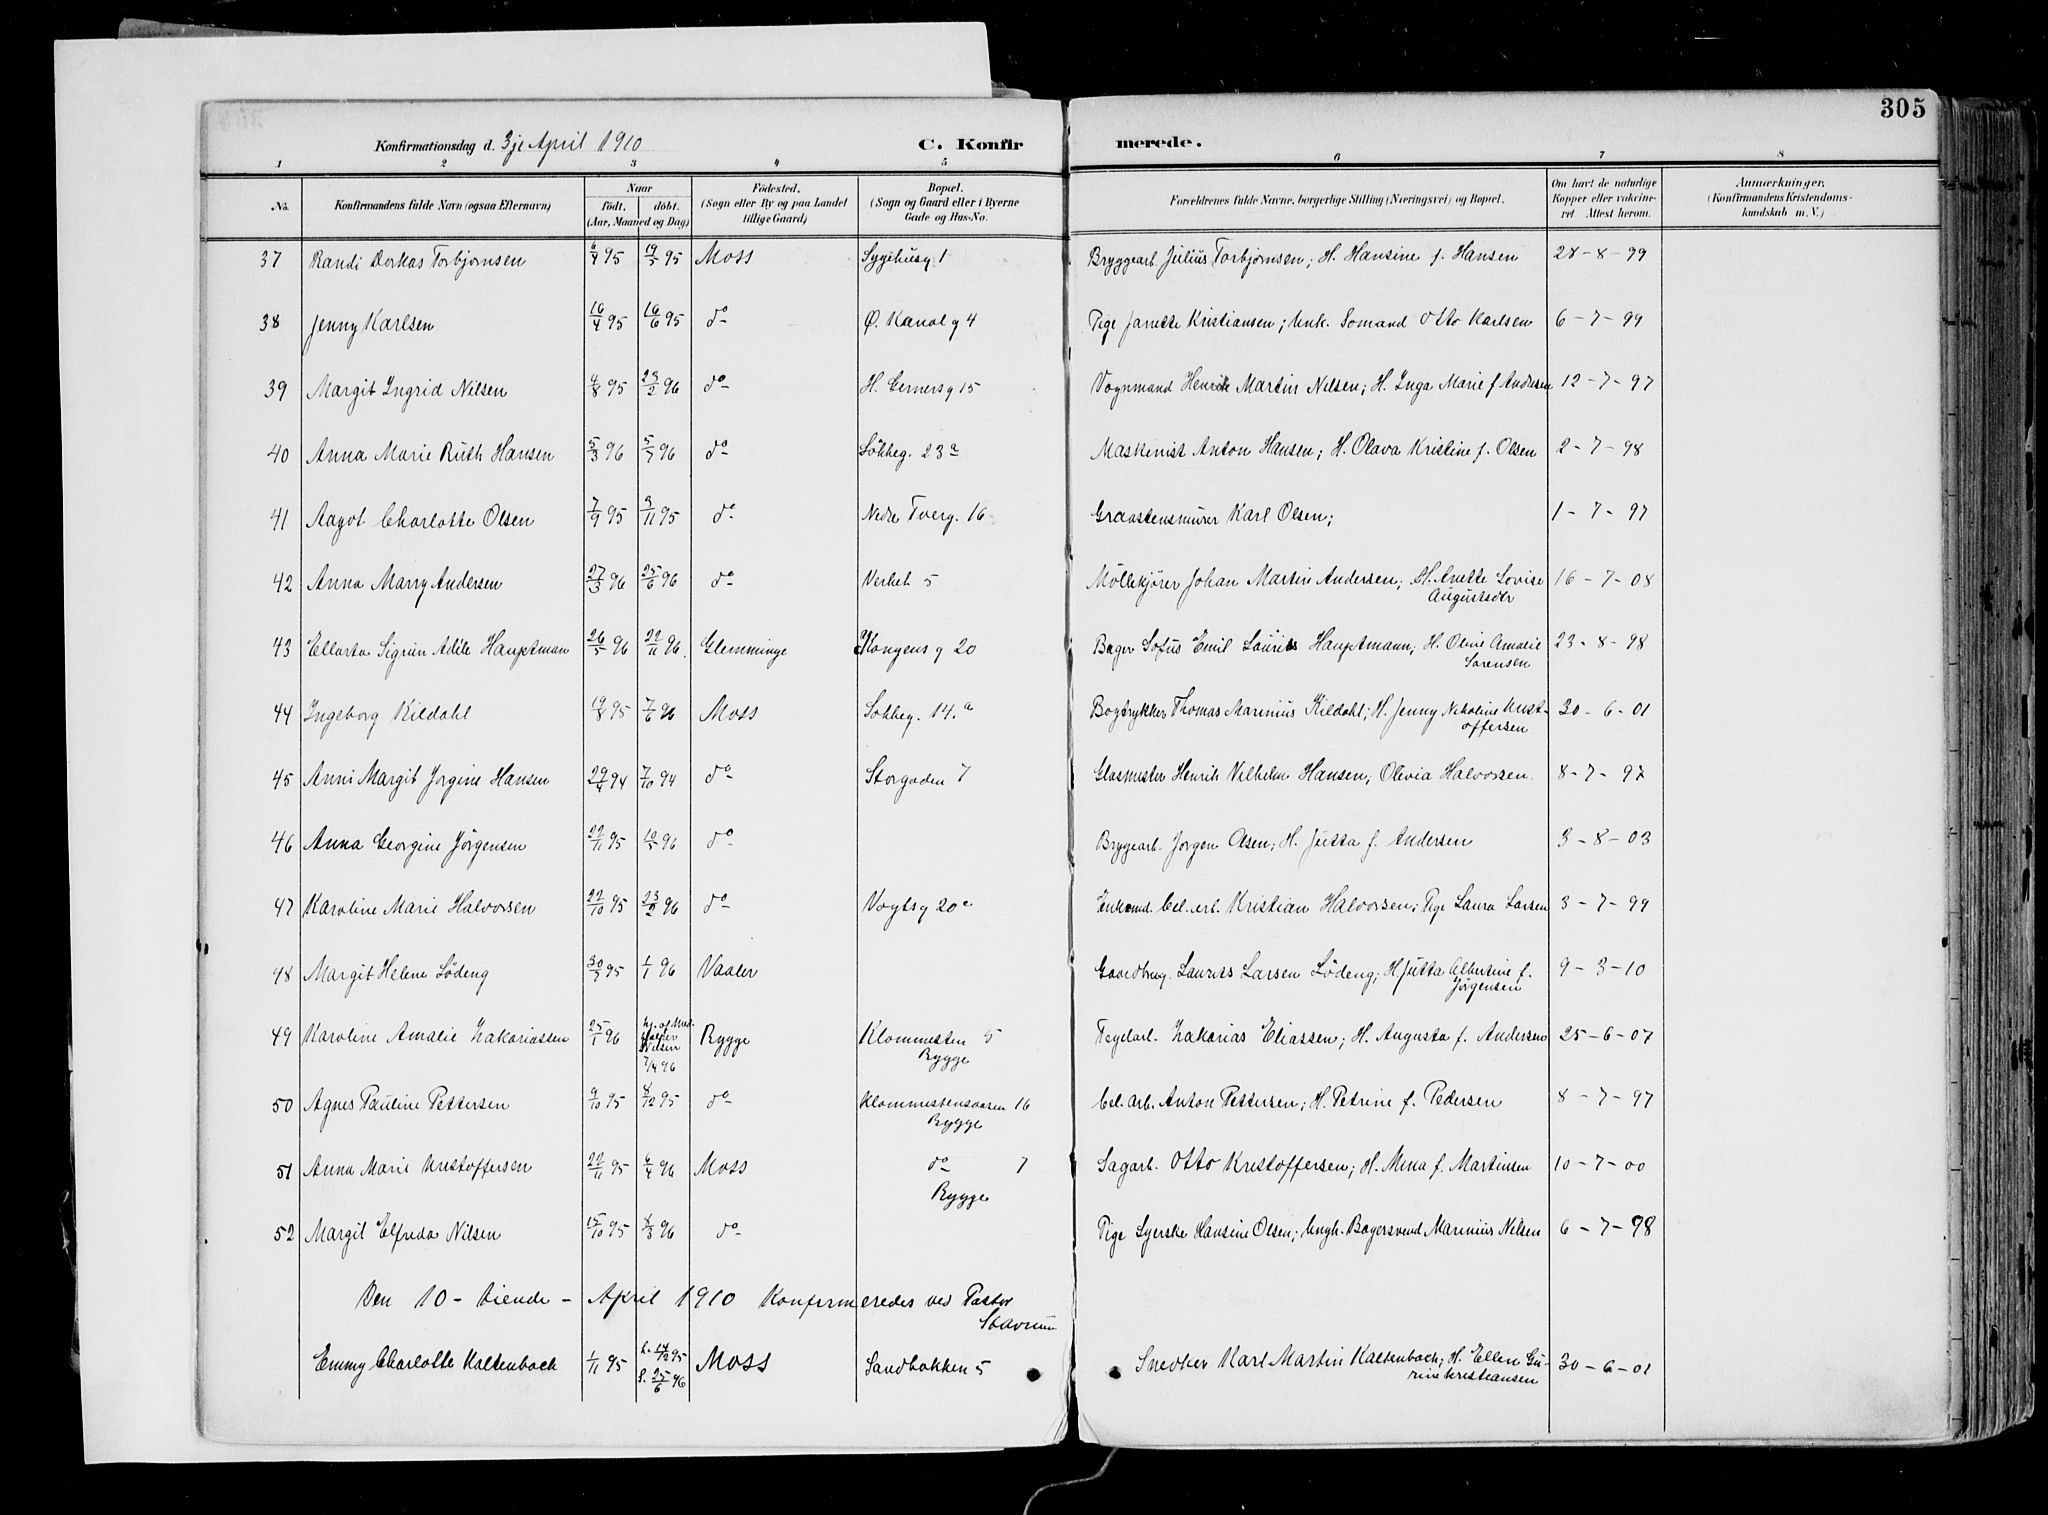 305
Konfirmationsdag d. 3je April 1910 C. Konfirmerede.
1 2 3 4 5 6 7 8
No. Konfirmandens fulde Navn (ogsaa Efternavn) Naar födt. döbt. (Aar, Maaned og Dag) Födested. (Sogn eller By og paa Landet tillige Gaard) Bopæl. (Sogn og Gaard eller i Byerne Gade og Hus-No. Forældrenes fulde Navne, borgerlige Stilling (Næringsvei) og Bopæl. Om havt de naturlige Kopper eller vakcineret Attest herom. Anmærkninger. (Konfirmandens Kristendomskundskab m. V.)
37 Randi Dorkas Torbjørnsen 4/4 95 19/5 95 Moss Sygehusg 1 Bryggearb. Julius Torbjørnsen; H. Hansine f. Hansen 28-8-99
38 Jenny Karlsen 16/4 95 16/6 95 do Ø. Kanal g 4 Pige Janette Kristiansen; Unk. Sømand Otto Karlsen 6-7-99
39 Margit Ingrid Nilsen 4/8 95 23/2 96 do H. Gerners g 15 Vognmand Henrik Martin Nilsen; H. Inga Marie f Andersen 12-7-97
40 Anna Marie Ruth Hansen 5/3 96 5/7 96 do Lökkeg. 23a Maskinist Anton Hansen; H. Olava Kristine f. Olsen 2-7-98
41 Aagot Charlotte Olsen 7/9 95 3/11 95 do Nedre Tverg. 16 Graastensmurer Karl Olsen; 1-7-97
42 Anna Marry Andersen 27/3 96 25/6 96 do Verket 5 Möllekjörer Johan Martin Andersen; H. Anette Lovise Augustsdtr 16-7-08
43 Ellarta Sigrun Adéle Hauptman 26/5 96 22/11 96 Glemminge Kongens g 20 Bager Sofus Emil Laurits Hauptmann; H. Oline Amalie Sørensen 23-8-98
44 Ingeborg Kildahl 19/8 95 7/6 96 Moss Løkkeg. 14.a Bogtrykker Thomas Marinius Kildahl; H. Jenny Nikoline Kristoffersen 30-6-01
45 Anni Margit Jørgine Hansen 29/4 94 7/10 94 do Storgaden 7 Glasmester Henrik Vilhelm Hansen; Olivia Halvorsen. 8-7-97
46 Anna Georgine Jörgensen 22/11 95 10/5 96 do Bryggearb. Jørgen Olsen; H. Jutta f. Andersen 3-8-03
47 Karoline Marie Halvorsen 22/10 95 23/2 96 do Vogts g 20a Enkemd. Cel. arb. Kristian Halvorsen; Pige Laura Larsen 3-7-99
48 Margit Helene Lödeng 30/7 95 1/1 96 Vaaler Gaardbrug. Laurits Larsen Lödeng; H Jutta Albertine f. Jörgensen 9-3-10
49 Karoline Amalie Zakariassen 25/1 96 hj. af Nilsen 7/4 96 Rygge Klommesten 5 Rygge Teglarb. Zakarias Eliassen; H. Augusta f. Andersen 25-6-07
50 Agnes Pauline Pettersen 9/10 95 8/12 95 do Klommestensaasen 16 Rygge Cel. arb. Anton Pettersen; H. Petrine f. Pedersen 8-7-97
51 Anna Marie Kristoffersen 22/11 95 6/4 96 Moss do 7 Rygge Sagarb. Otto Kristoffersen; H. Mina f. Martinsen 10-7-00
52 Margit Elfreda Nilsen 15/10 95 8/3 96 do Pige Syerske Hansine Olsen; Ungk. Bagersvend Marinius Nilsen 6-7-98
Den 10 - tiende - April 1910 Konfirmeredes ved Pastor
Stavrum
Emmy Charlotte Kaltenback 1/11 95 h. 14/12 95 S. 25/6 96 Moss Sandbakken 5 Snedker Karl Martin Kaltenbach; H. Ellen Gurine Kristiansen 30-6-01